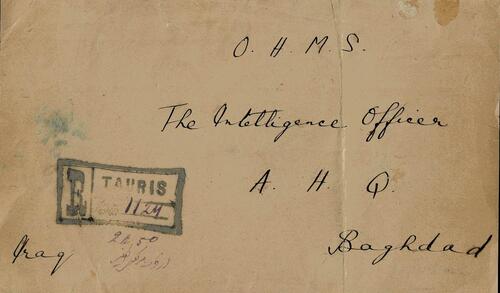 O. H. M. S.
The Intelligence Officer
A. H. Q.
Baghdad
Iraq
R TAURIS
1124